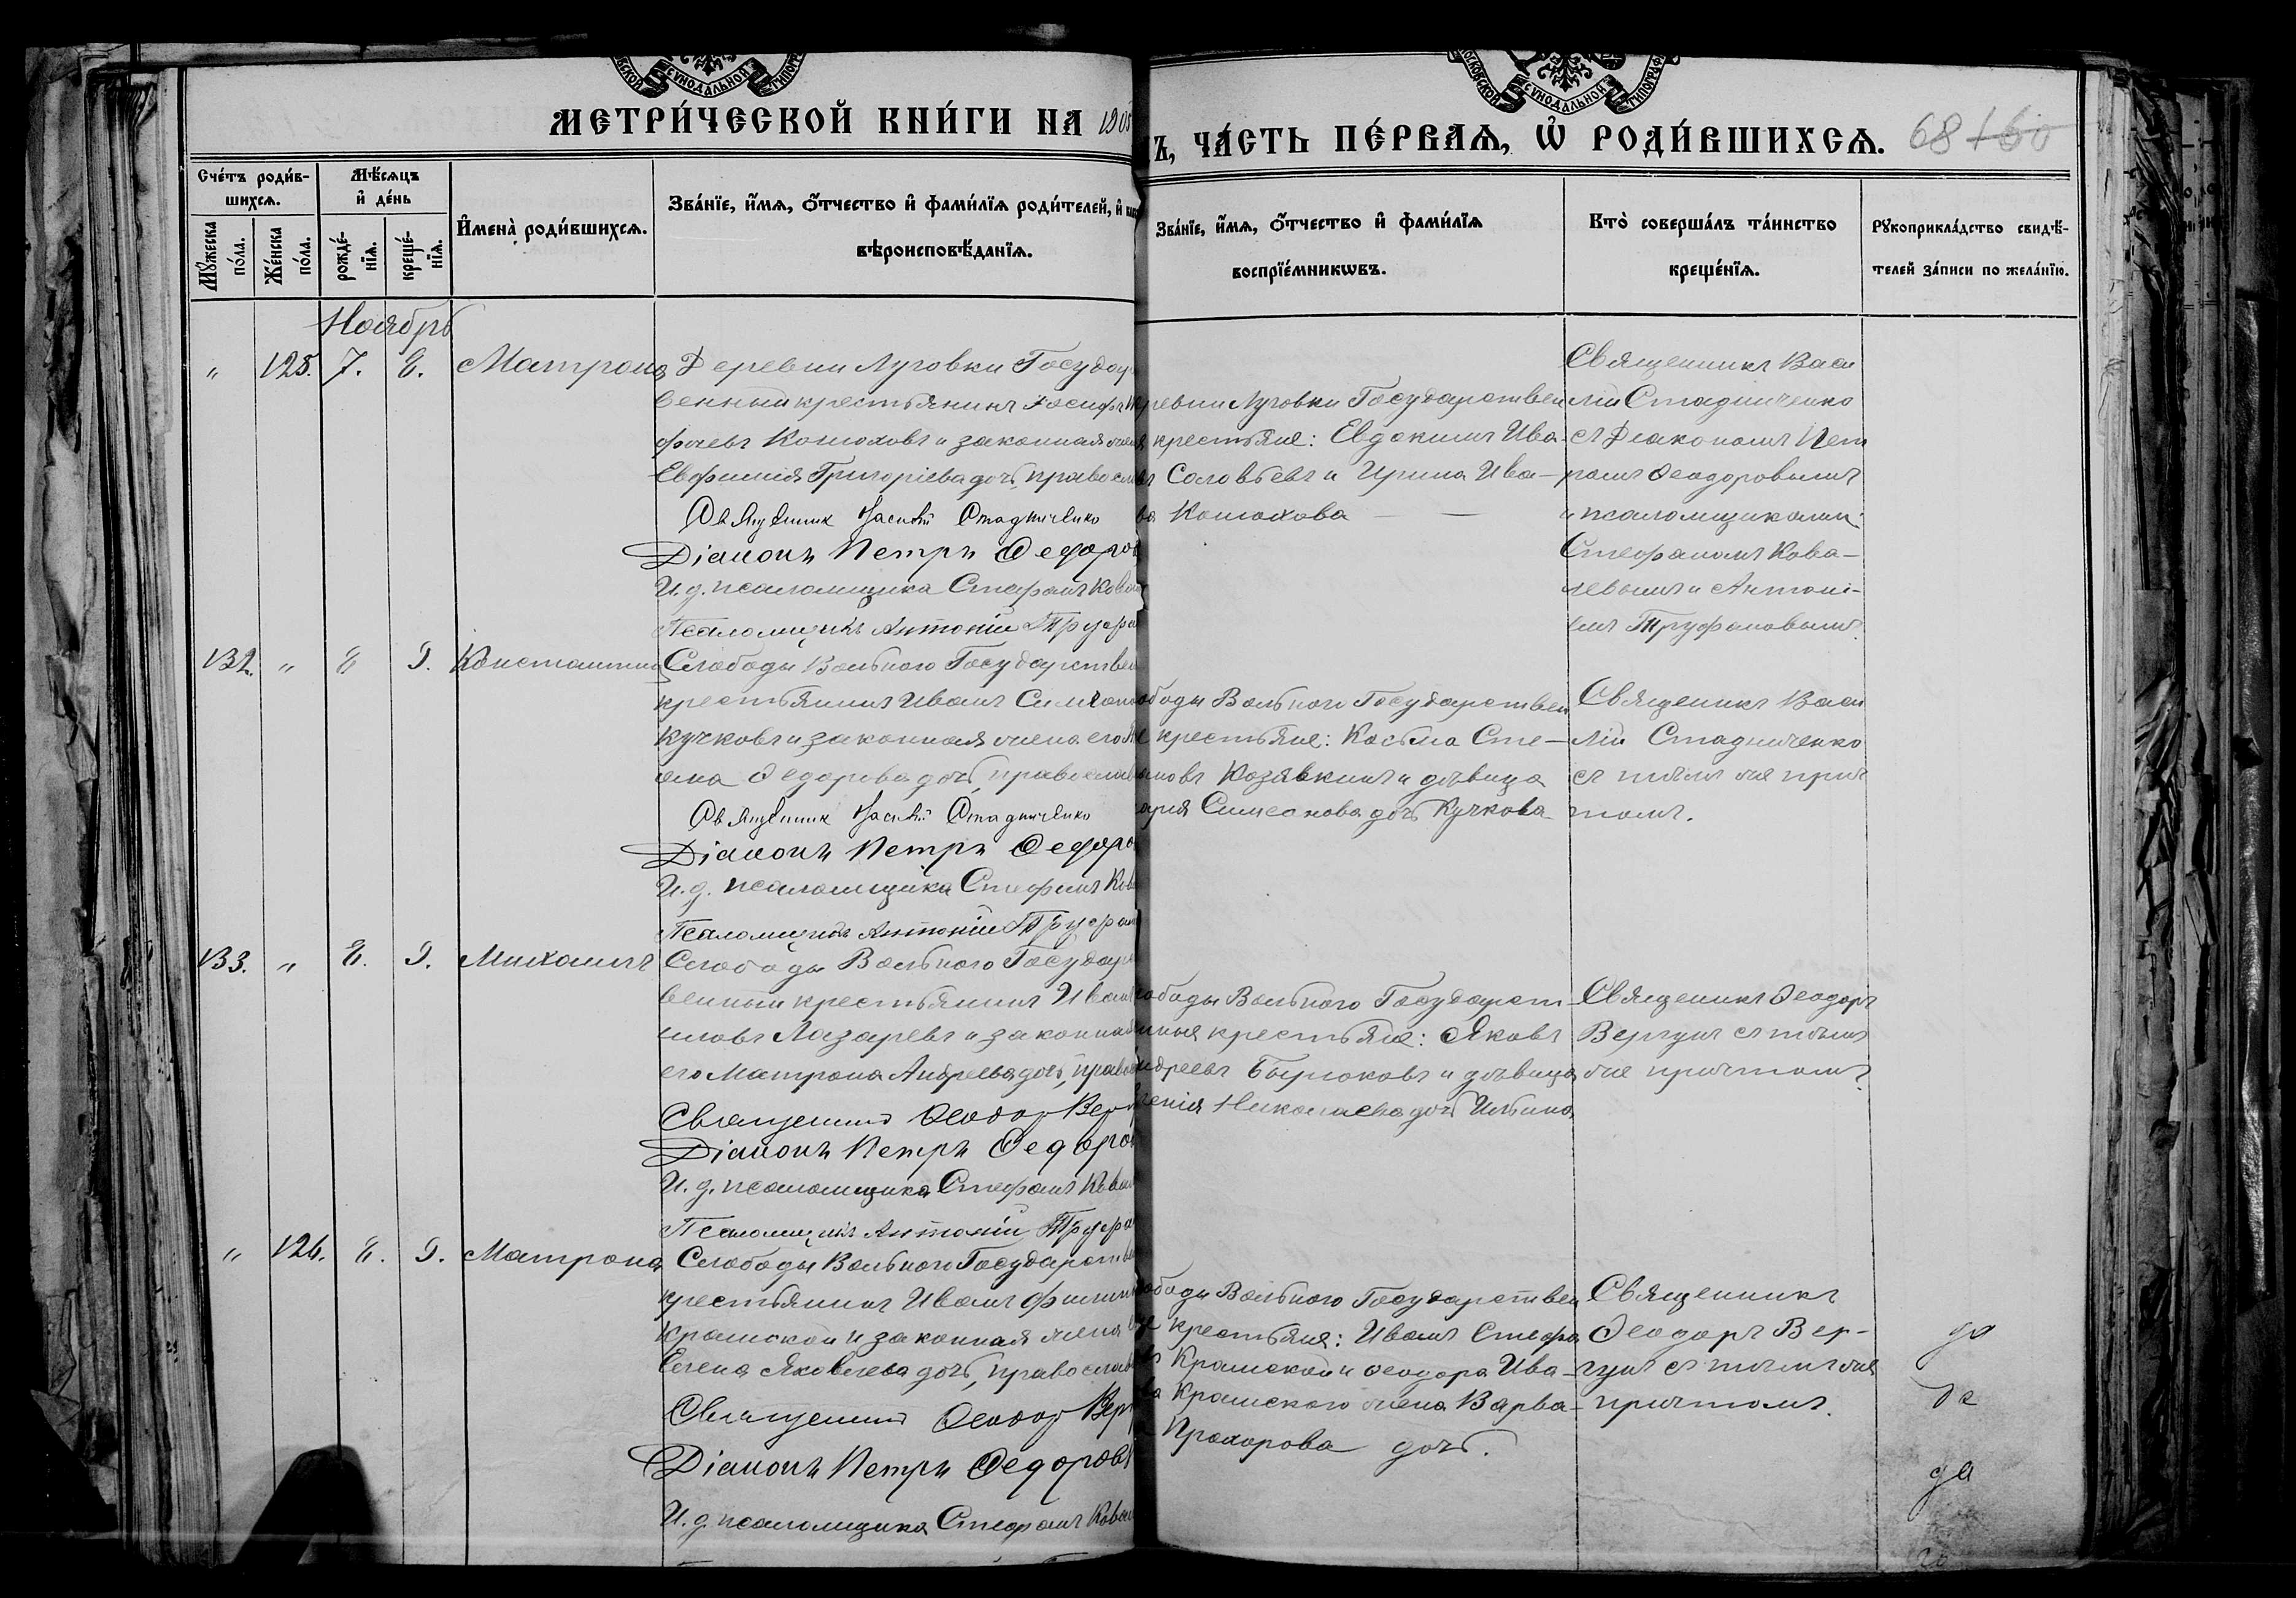 МЕТРИ́ЧЕСКОЙ КНИ́ГИ НА 190
Ъ, ЧА́СТЬ ПЕ́РВАЯ, Ѡ҆ РОДИ́ВШИХСЯ. 68 160
Сче́тъ роди́в-
шихся.
Мѣ́сяцъ
и҆ де́нь
И҆мена̀ роди́вшихся.
Зва́нїе, и҆́мя, ѻ҆́тчество и҆ фами́лїя роди́телей, и҆
вѣроисповѣ́данїя.
Мꙋ́жеска
по́ла.
Же́нска
по́ла.
рожде́-
нїя.
креще́-
нїя.
Зва́нїе, и҆́мя, ѻ҆́тчество и҆ фами́лїя
воспрїе́мникѡвъ.
Кто̀ соверша́лъ та́инство
креще́нїя.
Рꙋкоприкла́дство свидѣ́-
телей за́писи по жела́нїю.
Ноябрь
" 125. 7. 8. Матрона
Деревни Луговки Государ
венный крестьянинъ Іосифъ
фіевъ Конюховъ и законная жена
Евфимія Григоріева дочь, правосл
Священник Василій Стадниченко
Діаконъ Петръ Ѳедоров
И. д. псаломщика Стефанъ Кова
Псаломщикъ Антоній Труфа
ревни Луговки Государствен
крестьяне: Евдокимъ Ива-
въ Соловьевъ и Ирина Ива-
ва Конюхова
Священникъ Васи
лій Стадниченко
съ Діакономъ Пет
ромъ Ѳеодоровымъ
и псаломщиками:
Стефаномъ Кова-
левымъ и Антоні-
емъ Труфановымъ.
132. " 8 9. Константинъ
Слободы Вольного Государствен
крестьянинъ Иванъ Симеоно
Кучковъ и законная жена его
Ѳедорова дочь, православ
Священник Василій Стадниченко
Діаконъ Петръ Ѳедоро
И. д. псаломщика Стефанъ Кова
Псаломщикъ Антоній Труфан
ободы Вольного Государствен
е крестьяне: Косьма Сте-
ановъ Козявкинъ и дѣвица
арія Симеонова дочь Кучкова
Священникъ Васи
лій Стадниченко
съ тѣмъ же прич
томъ.
133. " 8. 9. Михаилъ
Слободы Вольного Государ
венный крестьянинъ Иван
Лазаревъ и законная
его Матрона Андреева дочь, право
Священник Ѳеодор Вер
Діаконъ Петръ Ѳедоро
И. д. псаломщика Стефанъ Кова
Псаломщикъ Антоній Труфа
ободы Вольного Государст-
нные крестьяне: Яковъ
ндреевъ Бирюковъ и дѣвица
генія Николаева дочь Ильина
Священникъ Ѳеодоръ
Вергунъ съ тѣмъ
же причтомъ.
" 126. 8. 9. Матрона
Слободы Вольного Государстве
крестьянинъ Иванъ Филип
Крамской и законная жена его
Елена Яковлева дочь, православ
Священник Ѳеодор Вер
Діаконъ Петръ Ѳедоров
И. д. псаломщика Стефанъ Кова
ободы Вольного Государствен
е крестьяне: Иванъ Стефа
въ Крамской и Ѳеодора Ива-
ва Крамского жена Варва-
Прохорова дочь.
Священникъ
Ѳеодоръ Вер-
гунъ съ тѣмъ же
причтомъ.